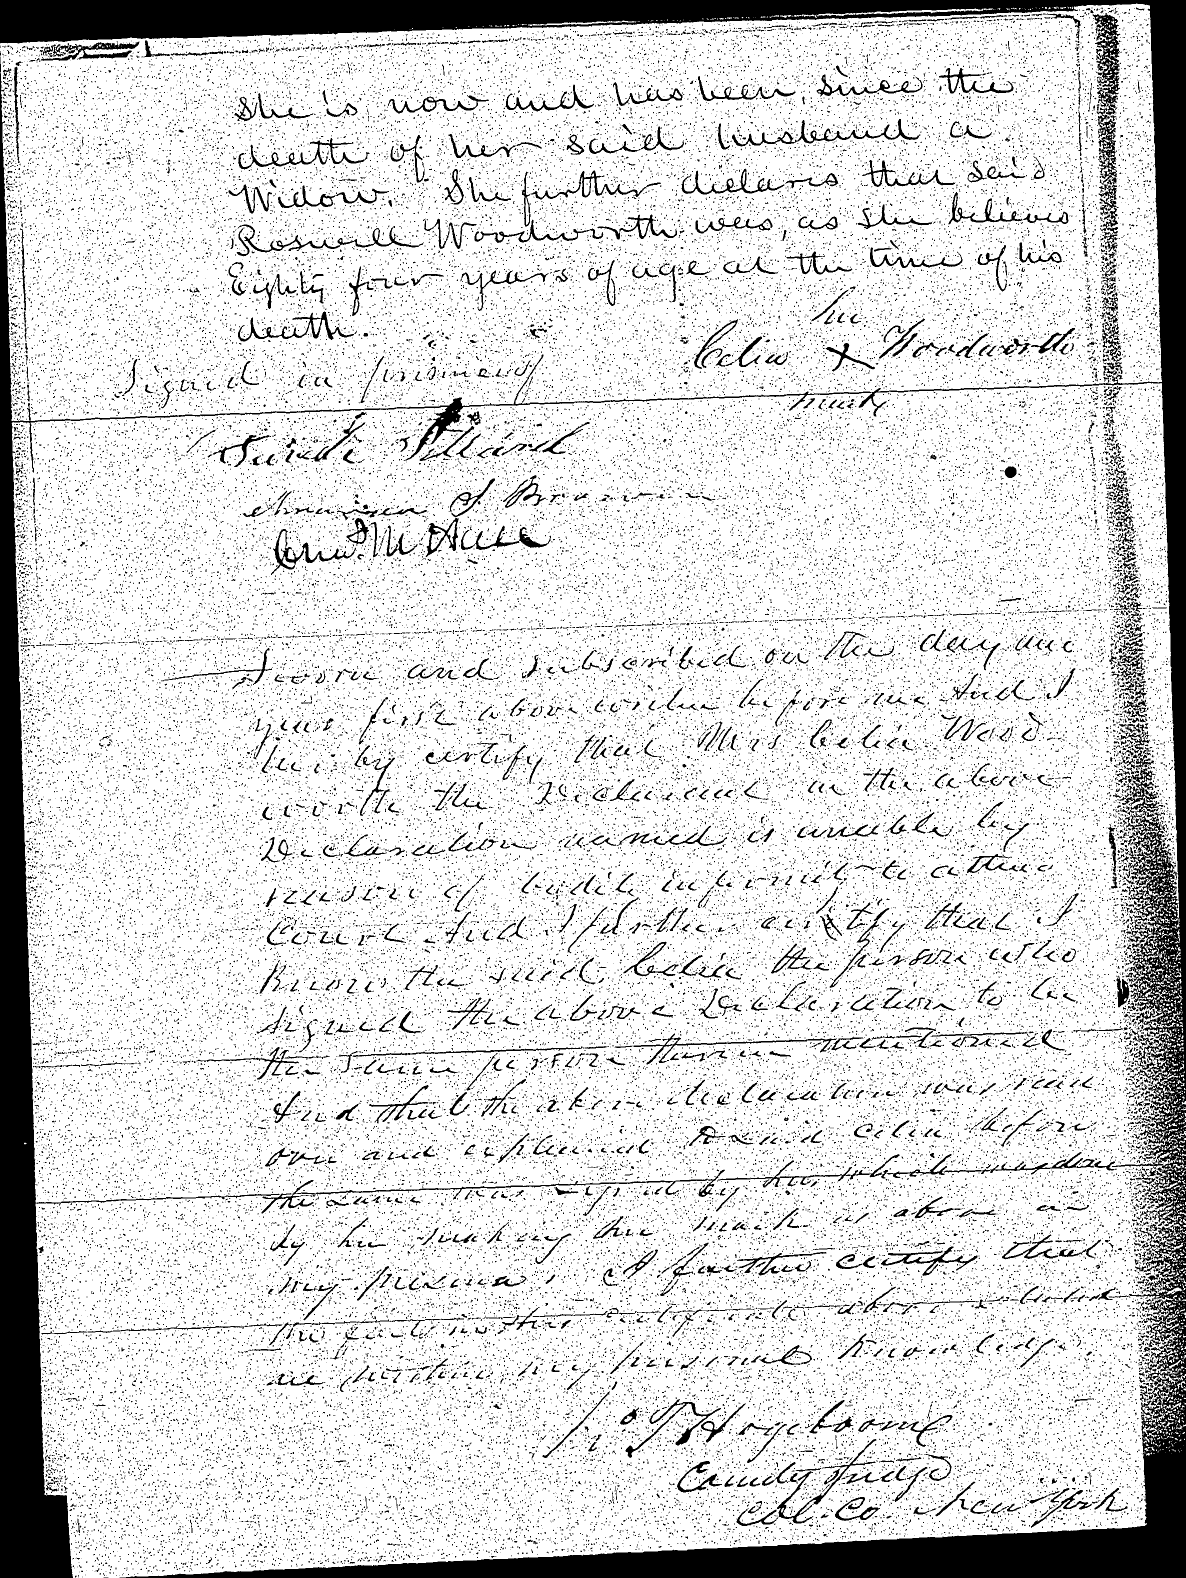 She is now and has been, since the
death of her said husband a
Widow. She further declares that said
Roswell Woodworth was, as she believes
Eighty four years of age at the time of his
death.
her
Celia X Woodworth
mark
Signed in presence of
Tillard
S. Brown
M Hall
Sworn and subscribed on the day and
year first above written before me And I
hereby certify that Mrs Celia Wood-
worth the Declarant in the above
Declaration named is unable by
reason of bodily infirmity to attend
Court And I further certify that I
Know the said Celia the person who
signed the above Declaration to be
the same person therein mentioned
And that the above declaration was read
over and explained to said Celia before
the same was signed by her which was done
by her making her mark as above in
my presence. I further certify that
the facts in this certificate above stated
are within my personal knowledge.
Jno T Hogeboom
County Judge
Col. Co. New York